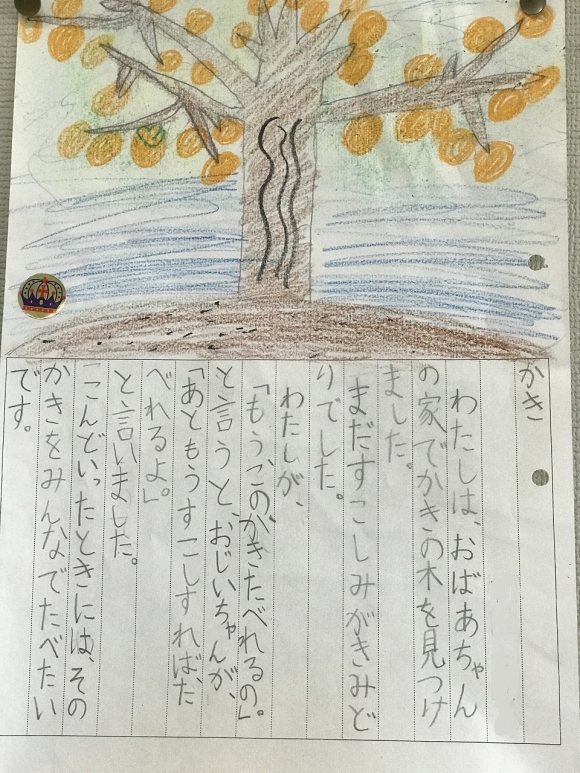 かき
わたしは、おばあちゃん
の家でかきの木を見つけ
ました。
まだすこしみがきみど
りでした。
わたしが、
「もう、この、かきたべれるの」。
と言うと、おじいちゃんが、
「あともうすこしすれば、た
べれるよ」。
と言いました。
こんどいったときには、その
かきをみんなでたべたい
です。